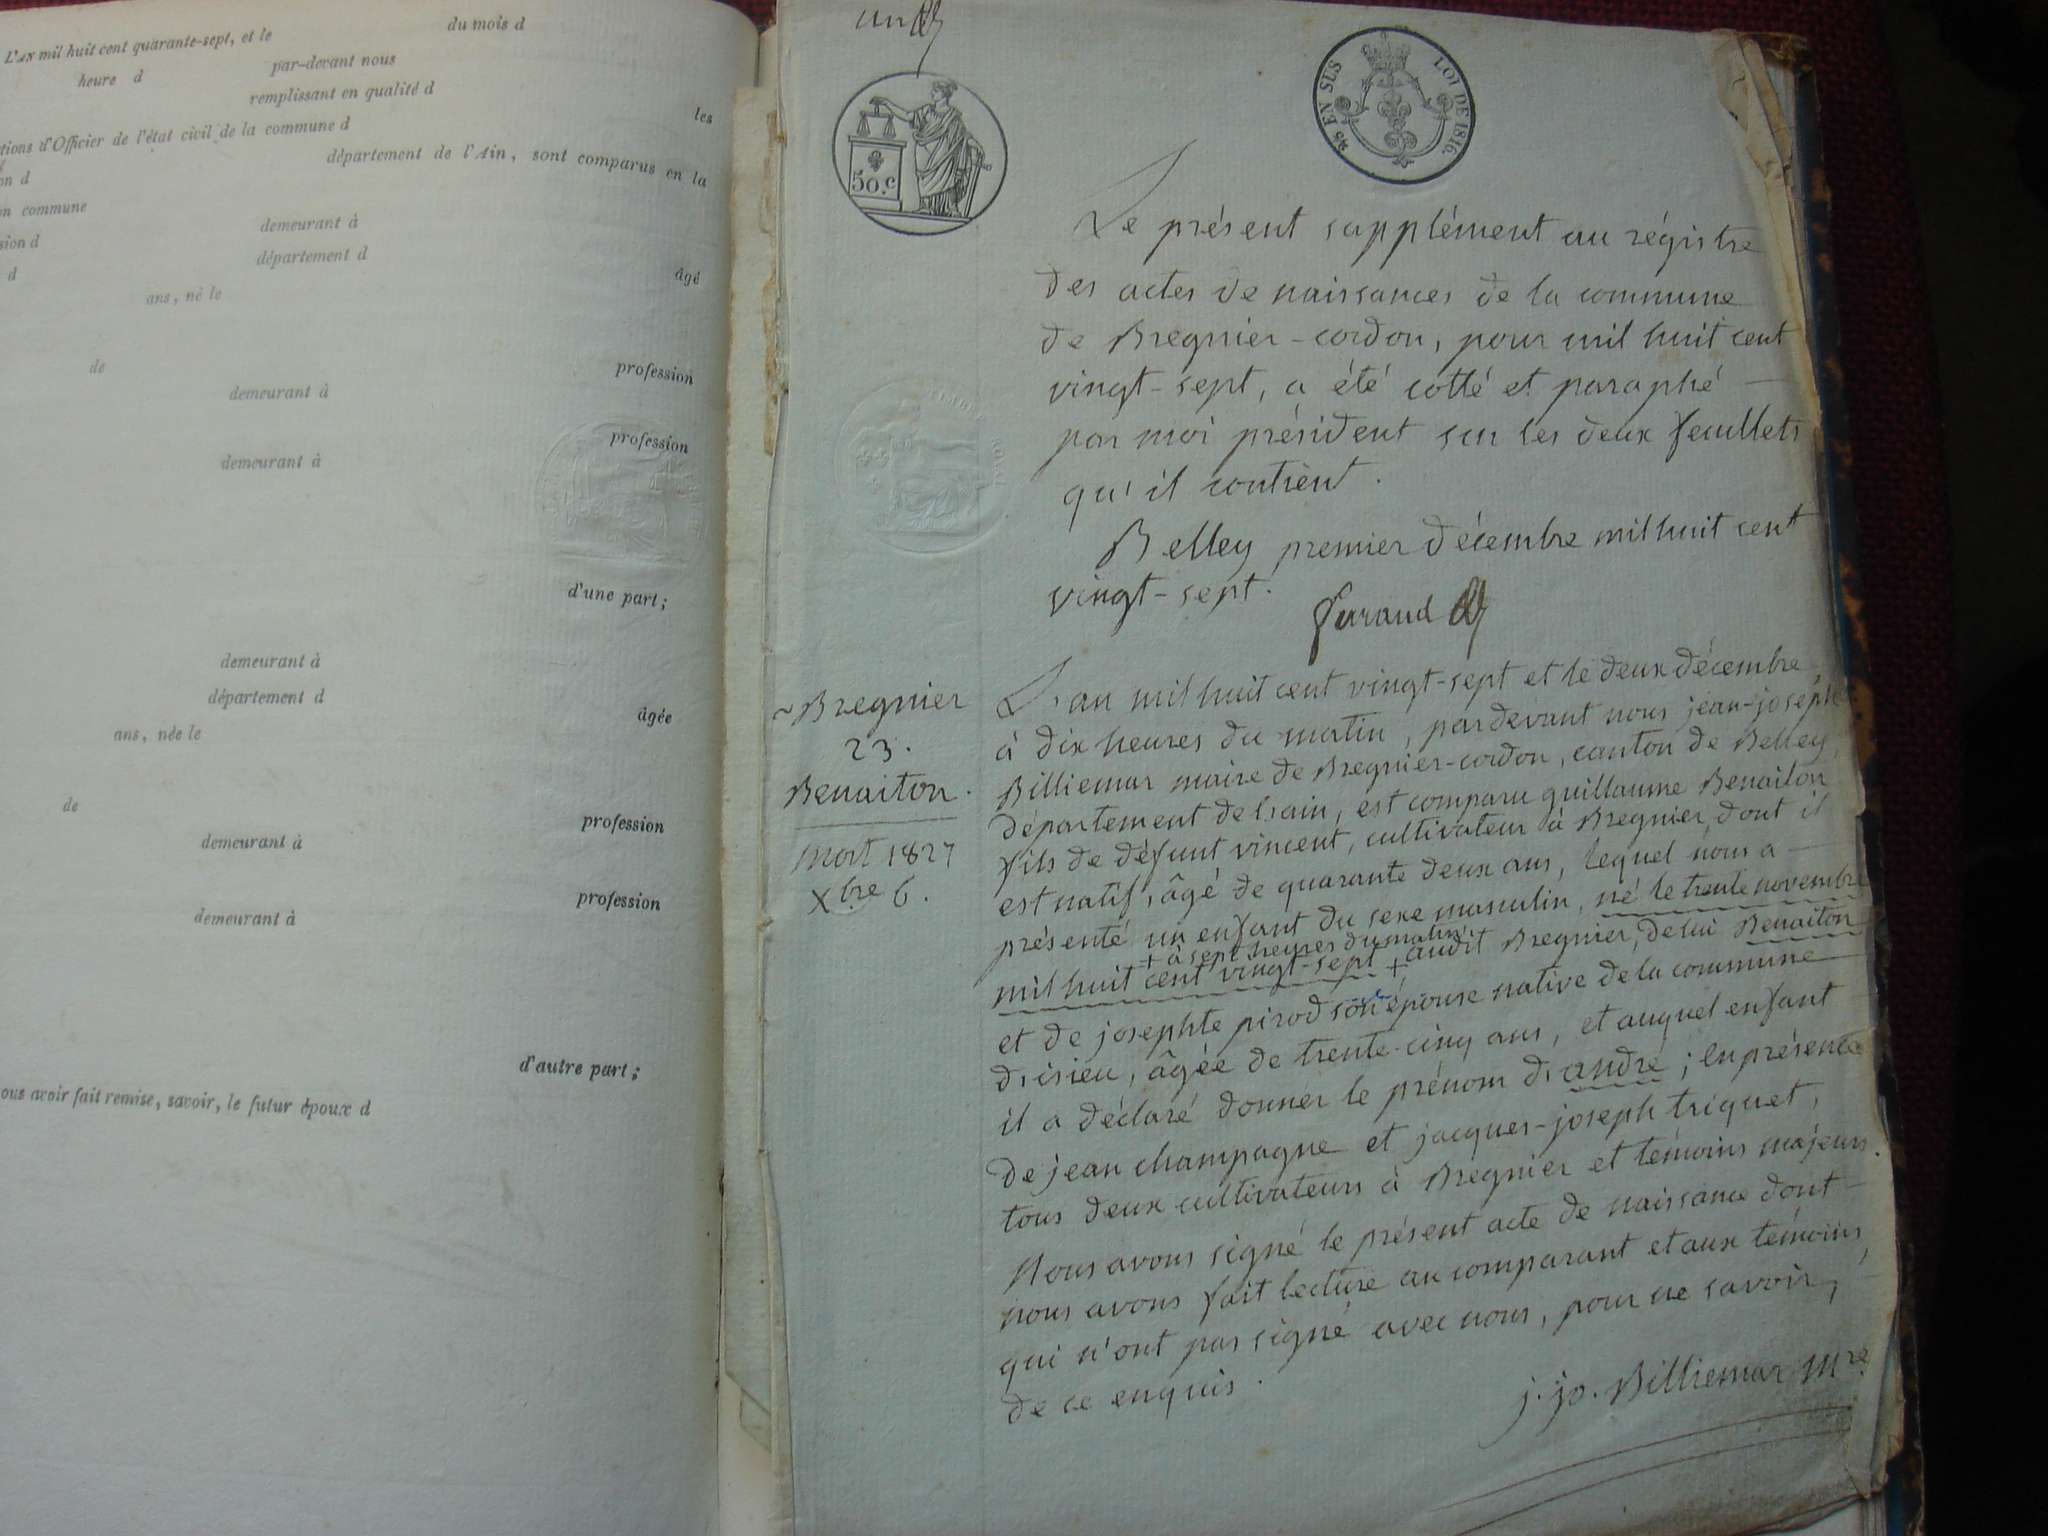 L'AN mil huit cent quarante-sept, et le
du mois d
heure d
par-devant nous
remplissant en qualité d
les
tions d'Officier de l'état civil de la commune d
département de l'Ain, sont comparus en la
on d
n commune
demeurant à
sion d
département d
d
âgé
ans, né le
de
profession
demeurant à
profession
demeurant à
d'une part;
demeurant à
département d
âgée
ans, née le
de
profession
demeurant à
profession
demeurant à
d'autre part;
ous avoir fait remise, savoir, le futur époux d
un
50.c
EN SUS LOI DE 1816.
Le présent supplément au régistre
des actes de naissances de la commune
de Bregnier-cordon, pour mil huit cent
vingt-sept, a été cotté et paraphé
par moi président sur les deux feuillets
qu'il contient.
Belley premier décembre mil huit cent
vingt-sept.
~Bregnier
23.
Benaiton.
mort 1827
Xbre 6.
L'an mil huit cent vingt-sept et le deux décembre,
à dix heures du matin, pardevant nous jean-joseph
Billiemar maire de Bregnier-cordon, canton de Belley,
département de l'ain, est comparu guillaume Benaiton
fils de défunt vincent, cultivateur à Bregnier, dont il
est natif, âgé de quarante deux ans, lequel nous a
présenté un enfant du sexe masculin, né le trente novembre
+ à sept heures du matin
mil huit cent vingt-sept + audit Bregnier, de lui Benaiton
et de josephte pirod son épouse native de la commune
d'isieu, âgée de trente-cinq ans, et auquel enfant
il a déclaré donner le prénom d'andré; en présence
de jean champagne et jacques-joseph triquet,
tous deux cultivateurs à Bregnier et témoins majeurs.
Nous avons signé le présent acte de naissance dont
nous avons fait lecture au comparant et aux témoins,
qui n'ont pas signé avec nous, pour ne savoir,
de ce enquis.
j. jo. Billiemar Mre